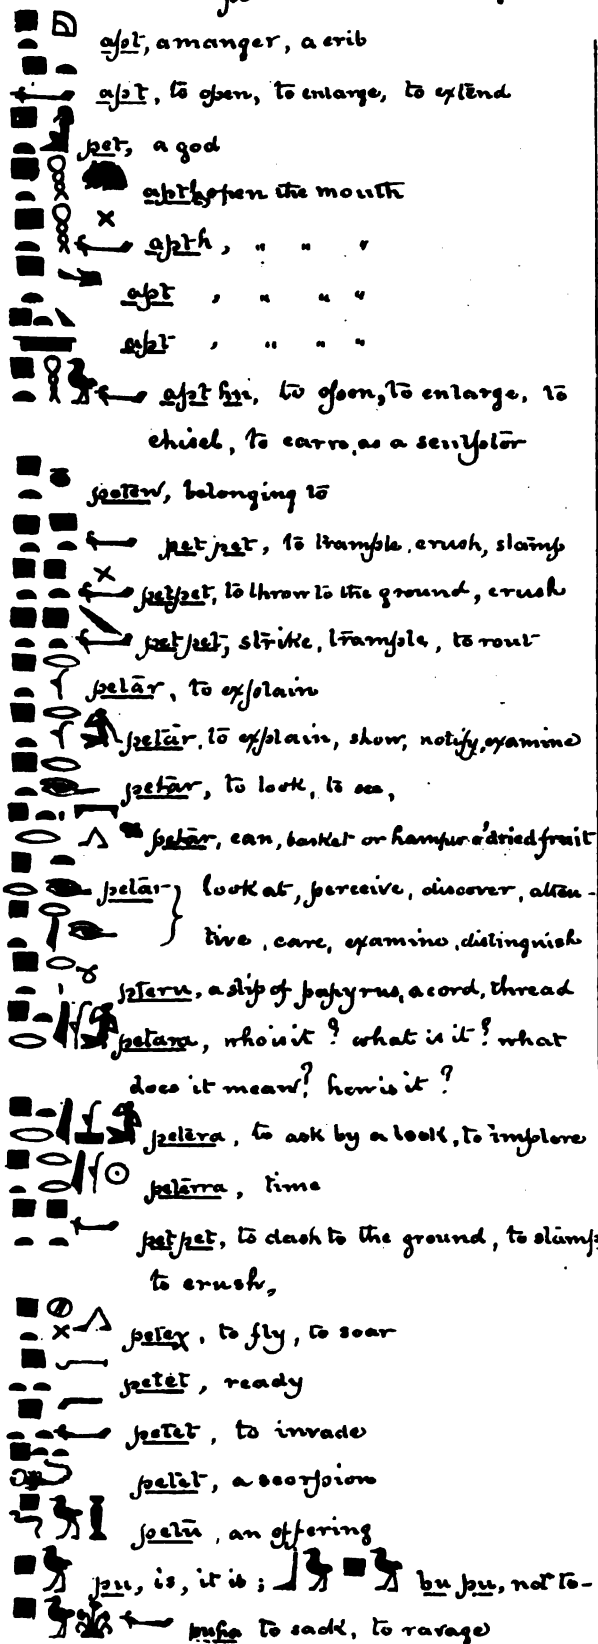 apt, a manger, a crib
apt, to open, to enlarge, to extend
pet, a god
apth, open the mouth
apth, " " "
apt , " " "
apt , " " "
apt hn, to open, to enlarge, to
chisel, to carve, as a sculptor
peten, belonging to
petpet, to trample, crush, stamp
petpet, to throw to the ground, crush
petpet, strike, trample, to rout
petār, to explain
petār, to explain, show, notify, examine
petār, to look, to see,
petār, can, basket or hamper o' dried fruit
petār } look at, perceive, discover, atten-
tive, care, examine, distinguish
pteru, a slip of papyrus, a cord, thread
petara, who is it? what is it? what
does it mean? how is it?
petera, to ask by a look, to implore
peterra, time
petpet, to dash to the ground, to stamp
to crush,
petex, to fly, to soar
petet, ready
petet, to invade
petet, a scorpion
petū, an offering
pu, is, it is; bu pu, not to-
to sack, to ravage